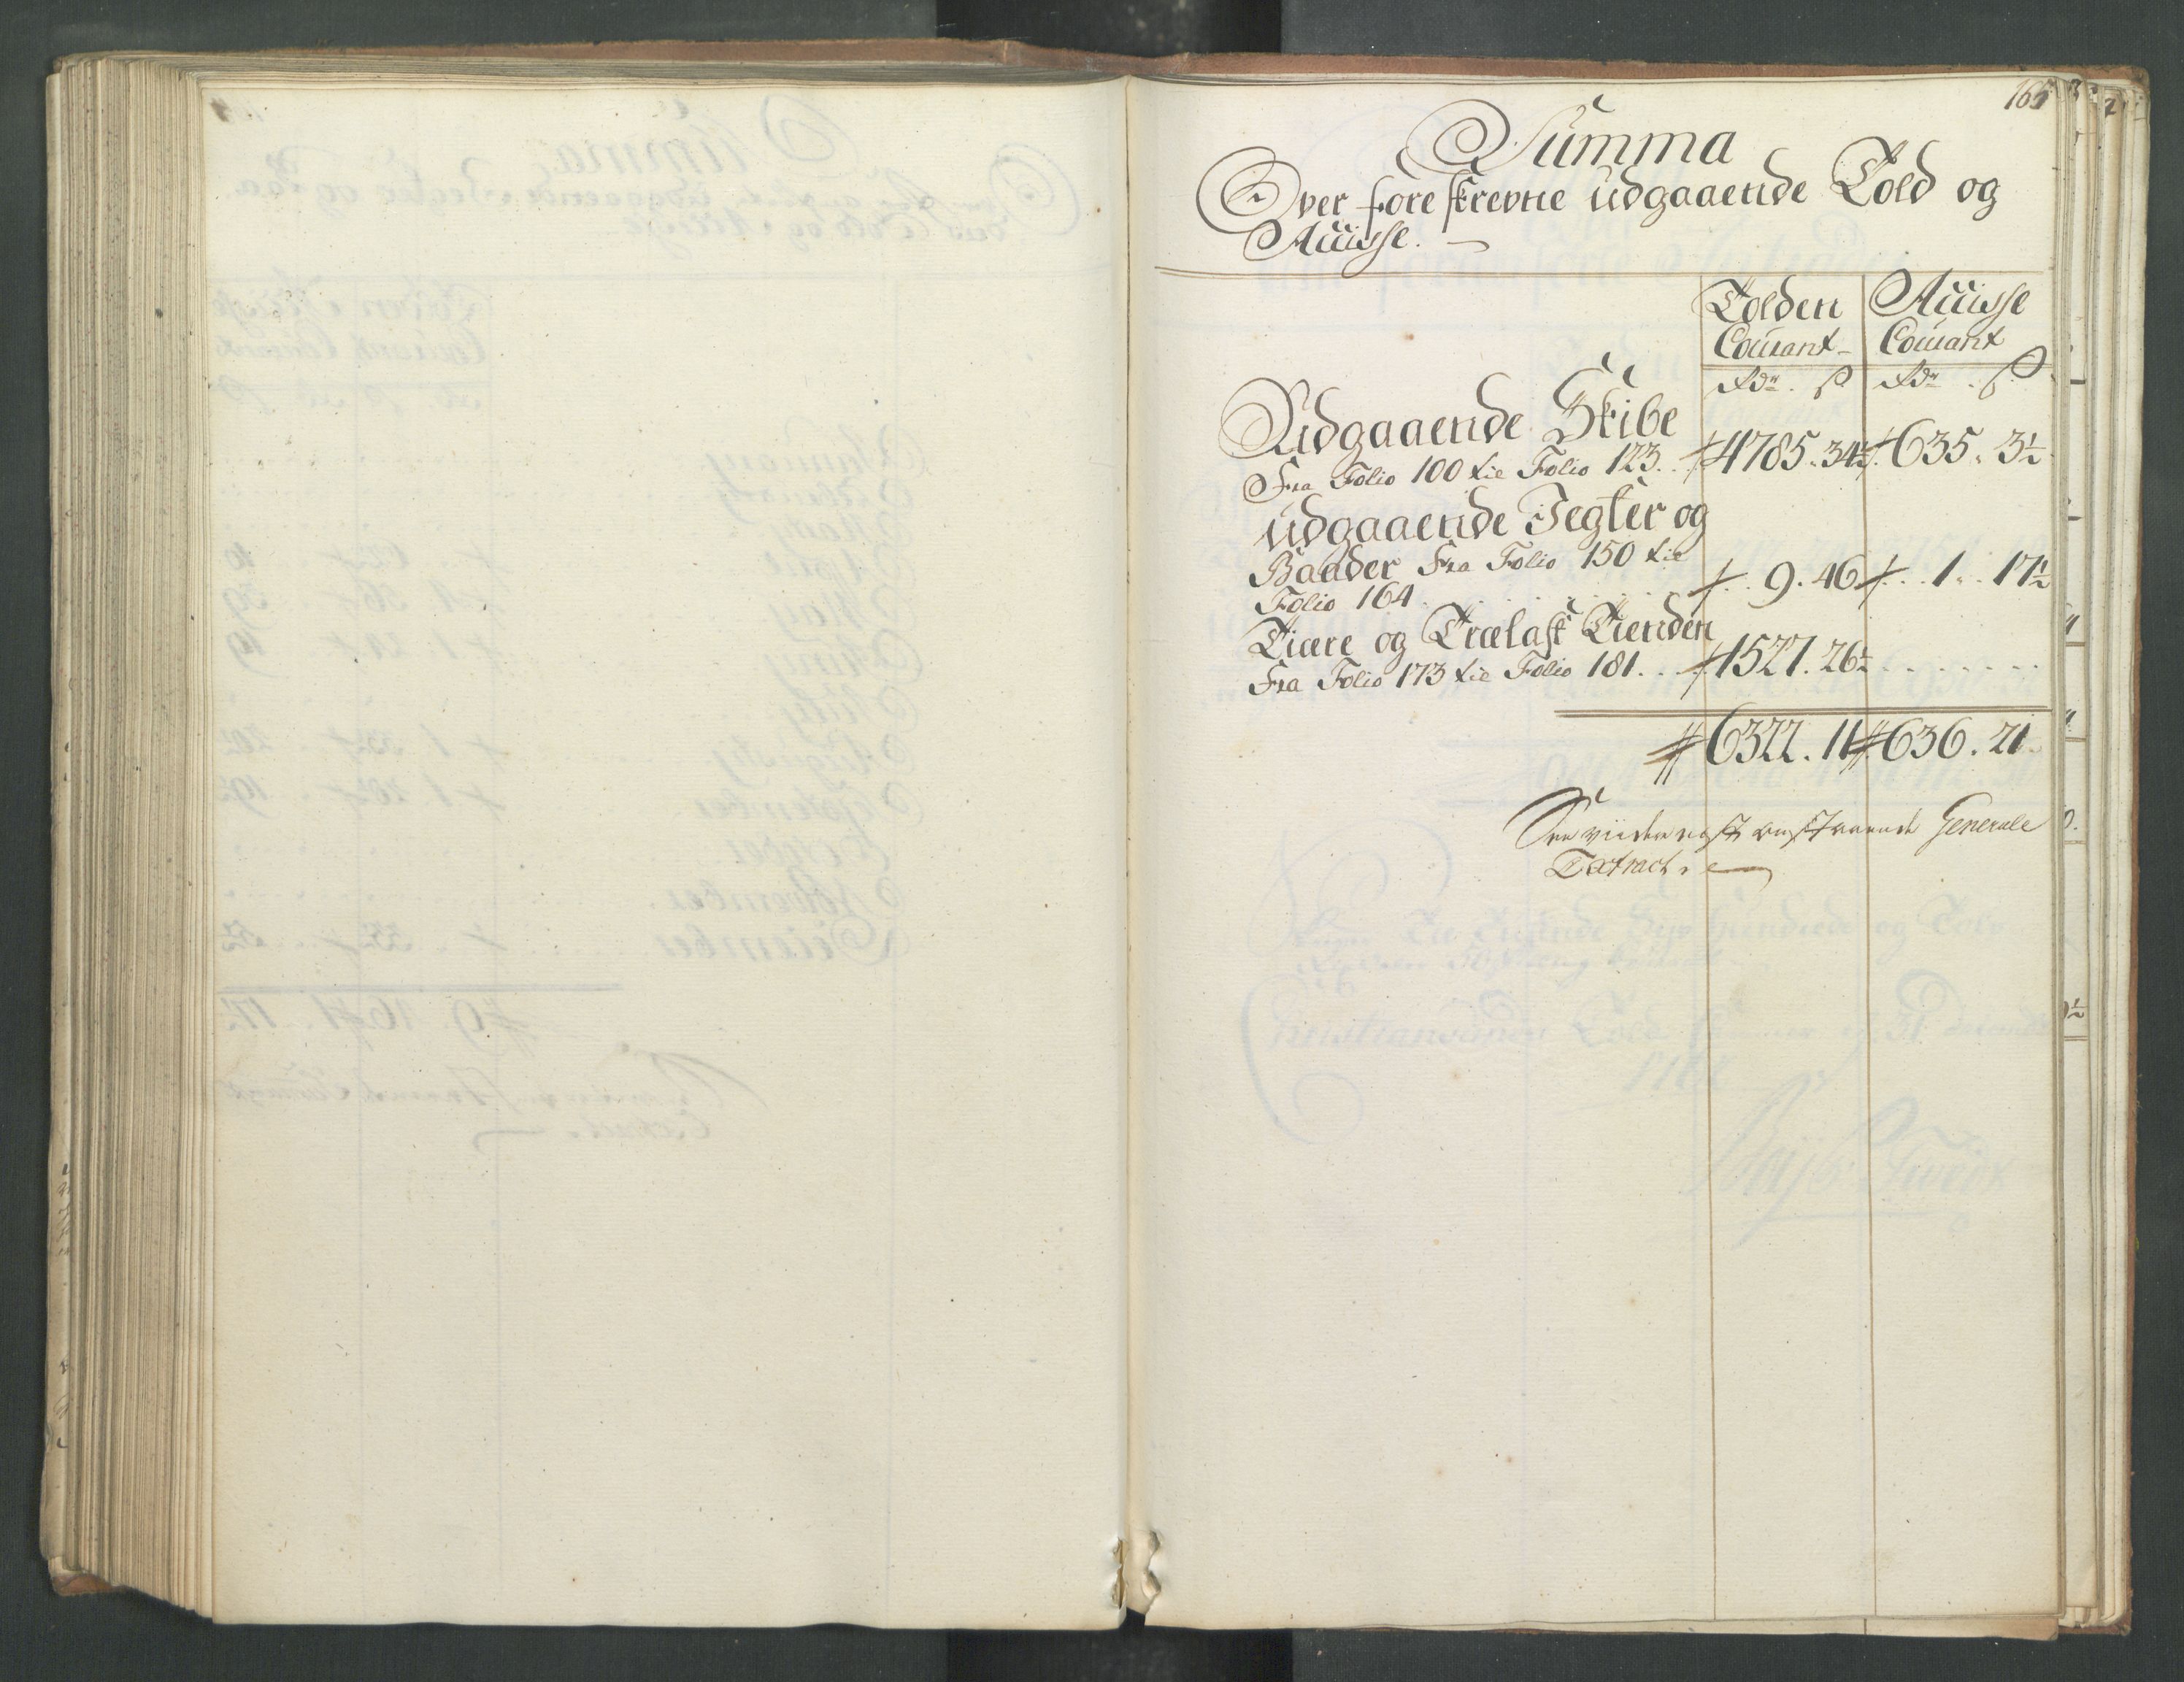 165
Summa
Over foreskrevne udgaaende Told og
Acciisse.
Tolden Acciisse
Courant Courant
Rdr. ß Rdr. ß
Udgaaende Skibe
Fra Folio 100 til Folio 123. 4785. 34½ 635. 3½
udgaaende Jegter og
Baader Fra Folio 150 til
Folio 164 . . . . . . 9. 46 . . 1 . . 17½
Tiære og Trælast Tienden
Fra Folio 173 til Folio 181 . . . 1527. 26½ . . . . . . .
6322. 11 636. 21.
Generale
Extract.